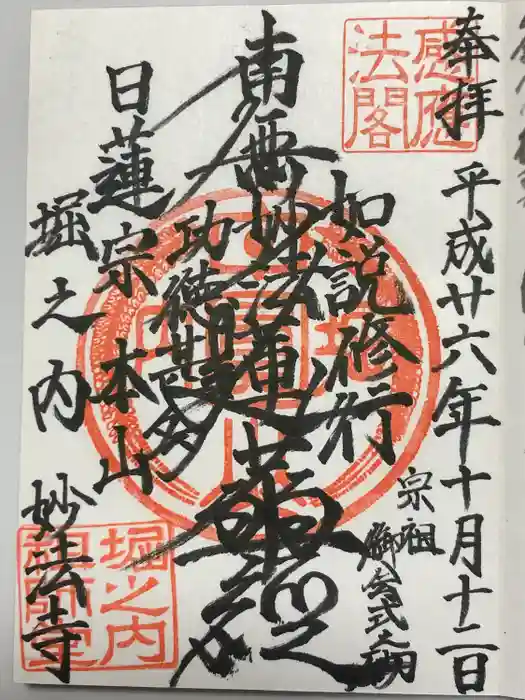 奉拝
平成廿六年十月十二日
感應法閣
宗祖
御会式
如説修行
南無妙法蓮華経
功徳甚多
日蓮宗本山
堀之内
妙法寺
堀之内
祖師堂